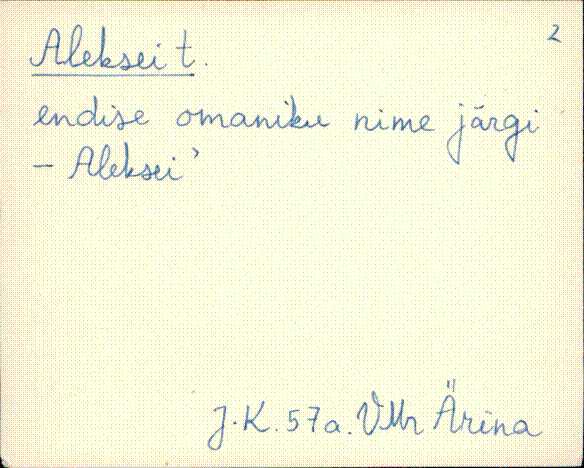 2
Aleksei t.
endise omaniku nime järgi
– Aleksei'
J.K. 57a. VMr Ärina